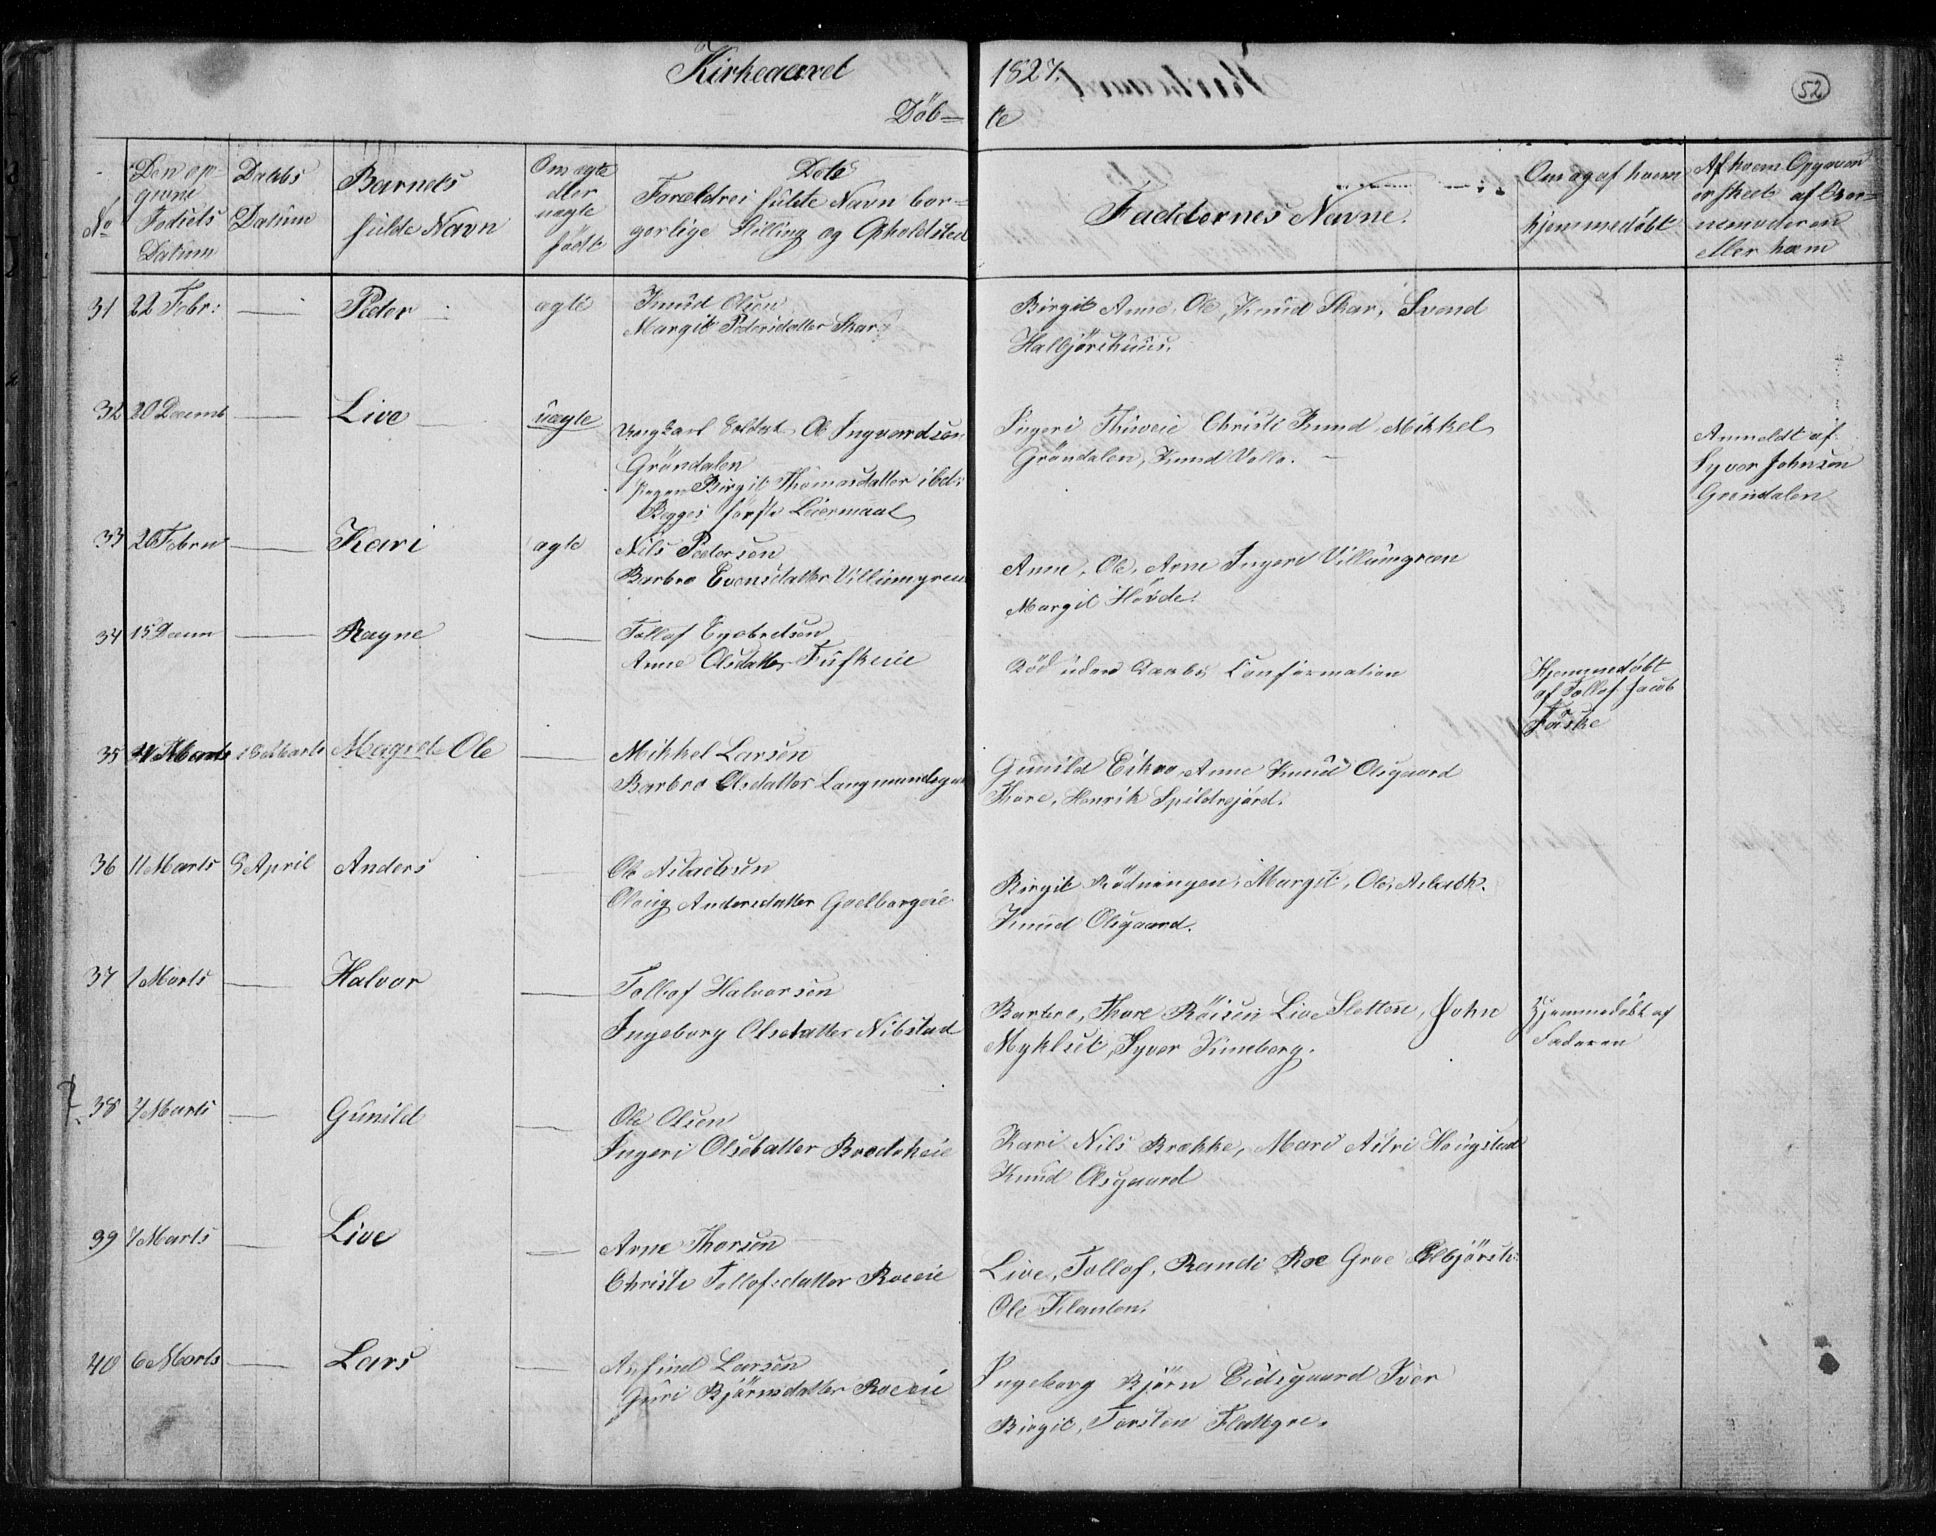 Kirkeaaret 1827.
52
Döb= te
No
Den op-
givne
Fødsels
Datum
Daabs
Datum
Barnets
fulde Navn
Om ægte
eller
uægte
født
Dets
Forældres fulde Navn bor-
gerlige Stilling og Opholdsted
Faddernes Navne.
Om og af hvem
hjemmedøbt
Af hvem Opgaven
er skeet af
eller hvem
31 22 Febr: — Peder ægte Knud Olsen
Margit Pedersdatter Skar
Birgit Anne, Ole, Knud Skar, Svend
Halbjørshuus.
32 20 Decemb — Live uægte Ungkarl Soldat Ole Ingvordsen
Gröndalen
Pigen Birgit Thomasdatter ibd:
Begges første Leiermaal
Ingeri Christi Knud Mikkel
Gröndalen, Knud Volle. —
Anmeldt af
Syver Johnsen
Grøndalen
33 Febru — Kari ægte Nils Pedersen
Barbro Svensdatter Villumgren
Anne, Ole, Arne Ingeri Villumgren
Margit Hövde.
34 15 Decm — Ragne — Tollof Engebretsen
Anne Olsdatter
Död uden Daabs Confirmation
Hjemmedøbt
af Tollof Jacob
Fauske
35 Marts 18 Marts Ole — Mikkel Larsen
Barbro Olsdatter Langmandsgaard
Gunild Anne Knud Olsgaard
Thore, Henrik
36 11 Marts 8 April Anders — Ole Aslaksen
Olaug Andersdatter
Birgit Rödningen, Margit, Ole, Aslack.
Knud Olsgaard.
37 1 Marts — Halvor — Tollof Halvorsen
Ingeborg Olsdatter Nibstad
Barbro, Thore Röisen Live Sletten, John
Myklset, Syver Kinneberg.
Hjemmedøbt af
Faderen
38 7 Marts — Gunild — Ole Olsen
Ingeri Olsdatter
Kari Nils Brække, Mari Astri Hougstad
Knud Olsgaard
39 7 Marts — Live — Arne Thorsen
Christi Tollofsdatter Roeeie
Live, Tollof, Randi Roe Groe
Ole
40 6 Marts — Lars — Anfind Larsen
Guri Bjørnsdatter Roeeie
Ingeborg Bjørn Eidsgaard Iver
Birgit, Torsten